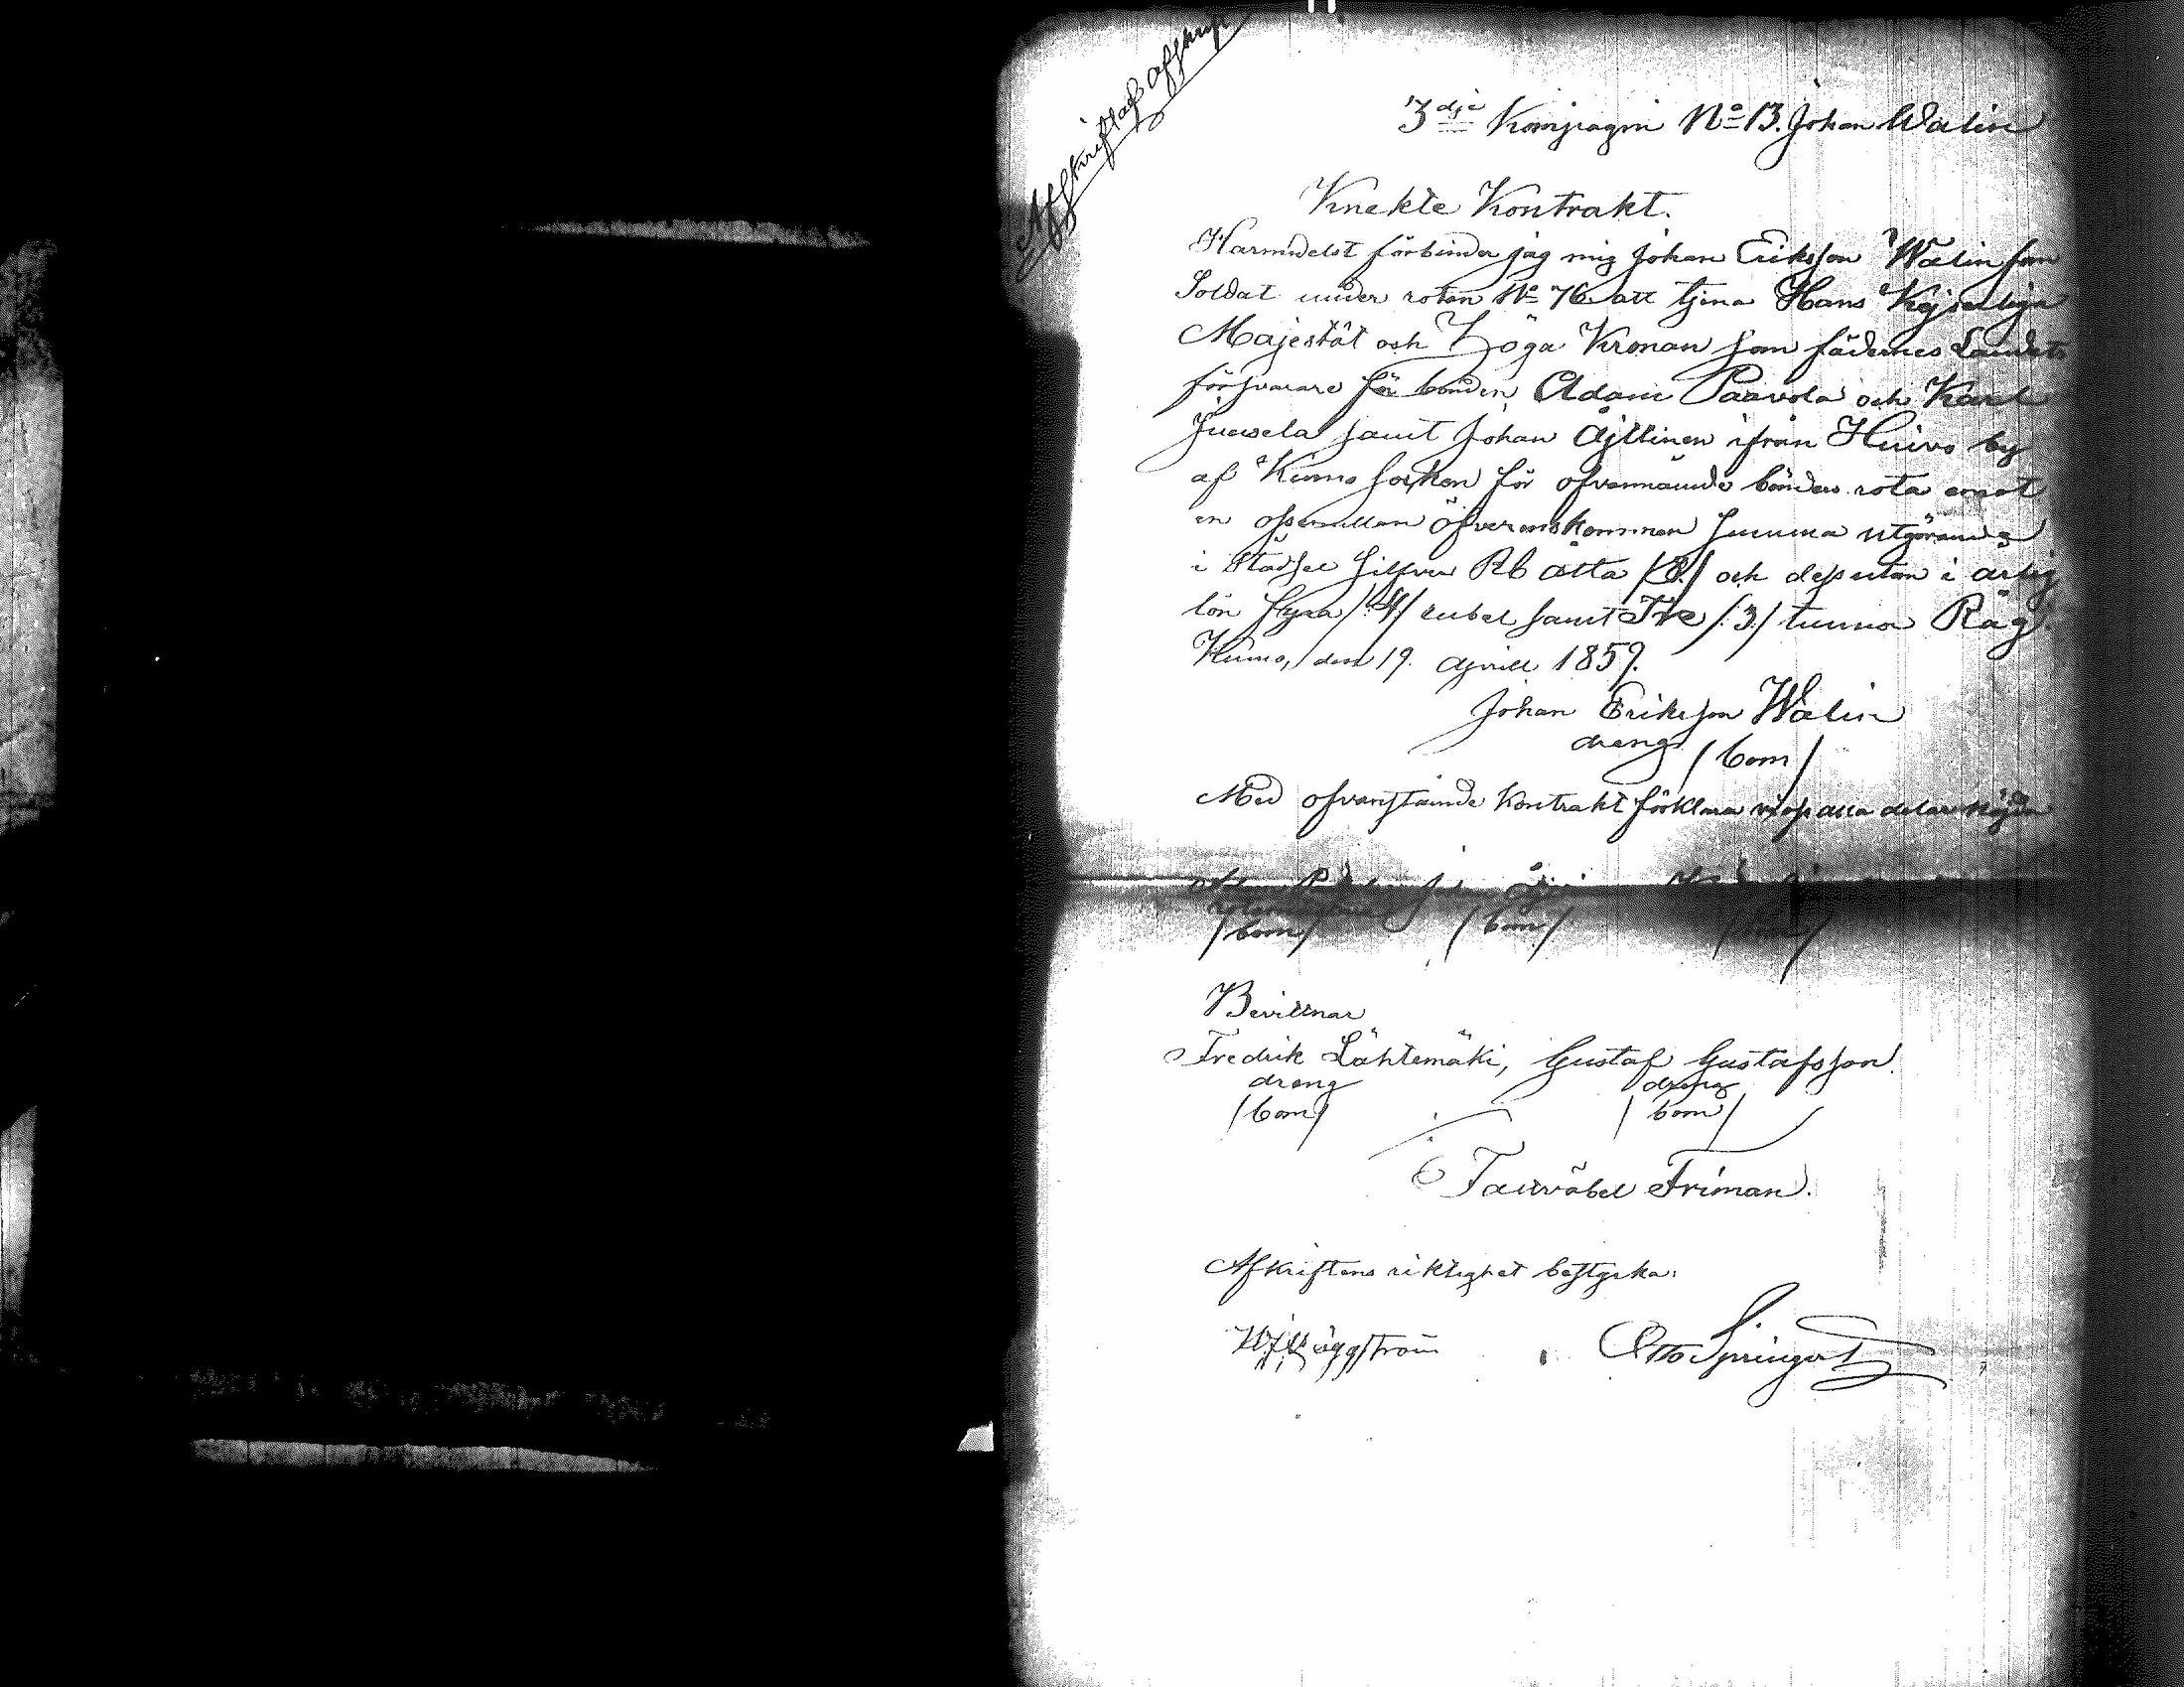 Afskriftas afskrift
3dje Kompagni No 13. Johan Walin
Knekte Kontrakt.
Harmedelst förbinder jag mig Johan Eriksson Walin som
Soldat under roten No 76 att tjena Hans Kejserliga
Majestät och Höga Kronan som fädernes Landets
försvarare för bonden Adam Paavola och Karl
Juusela samt Johan Äjttinen ifrån Huivo by
af Kumo socken för ofvennämde bönders rota emot
en oss emellan öfverenskommen summa utgörande
i städsel silfver Rb åtta /8/ och dessutan i årlig
lön fyra /4/ rubel samt Tre /3/ tunnor Råg.
Kumo, den 19. April 1859.
Johan Eriksson Walin
dreng /bom/
Med ofvanstående Kontrakt förklara vi oss alla delar nöjda
/bom/ /bom/ /bom/
Bevittnar
Fredrik Lähtemäki, Gustaf Gustafsson.
dreng dreng
/bom/ /bom/
Friman.
Afskriftens riktighet bestyrka:
Häggström Otto Springert